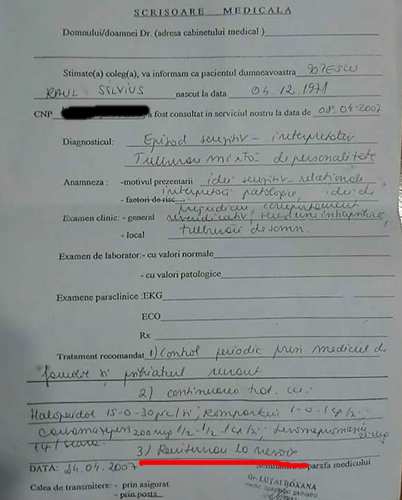 SCRISOARE MEDICALA
Domnului/doamnei Dr. (adresa cabinetului medical)
Stimate(a) coleg(a), va informam ca pacientul dumneavoastra POPESCU
RAUL SILVIUS nascut la data 04.12.1971
CNP a fost consultat in serviciul nostru la data de 08.04.2007
Diagnosticul: Episod senzitiv - interpretativ
Tulburare mixtă de personalitate
Anamneza : -motivul prezentarii idei senzitiv - relationale
- factori de risc interpretări patologice, idei de
prejudiciu comportament
Examen clinic: - general revendicativ, tensiune
- local tulburări de somn.
Examen de laborator: - cu valori normale
- cu valori patologice
Examene paraclinice :EKG
ECO
Rx
Tratament recomandat 1) Control periodic prin medicul de
familie și psihiatrul curant
2) continuarea trat. cu
Haloperidol 15-0-30 pic/zi, Romparkin 1-0-1 cp/zi
200 mg 1/2-1/2-1 cp/zi, 25 mg
1 cp/seara
3) Reinternau la nevoie
DATA: 24.04.2007 Semnatura si parafa medicului
Calea de transmitere: - prin asigurat
- prin posta
Dr. LUTAI ROXANA
medic specialist psihiatru